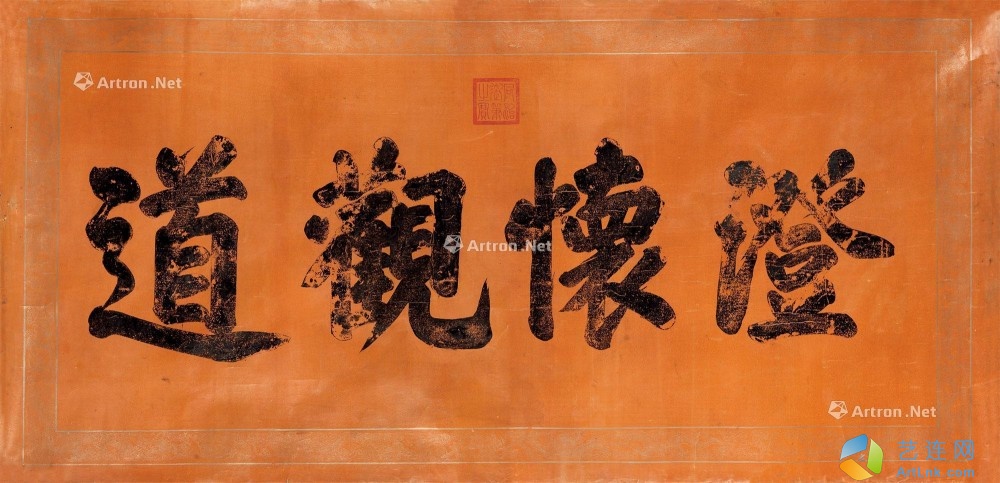 Artron.Net
澄懷觀道
Artron.Net
Artron.Net
艺连网